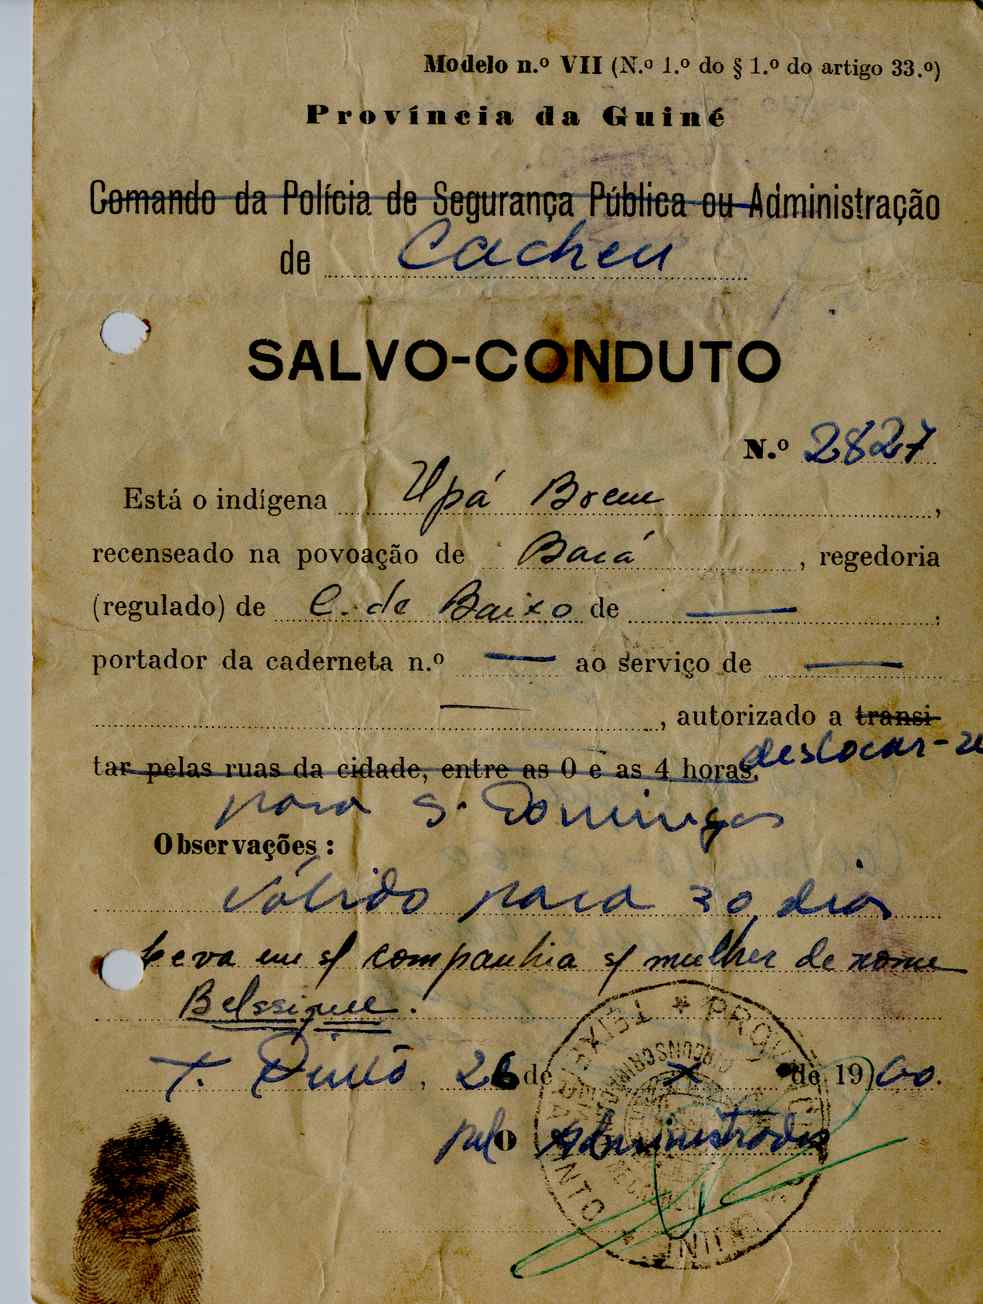 Modelo n.º VII (N.º 1.º do § 1.º do artigo 33.º)
Província da Guiné
Comando da Polícia de Segurança Pública ou Administração
de Cacheu
SALVO-CONDUTO
N.º 2827
Está o indígena Upá Boem,
recenseado na povoação de Bará, regedoria
(regulado) de C. de Baixo de — .
portador da caderneta n.º — ao serviço de —
—, autorizado a transi-
tar pelas ruas da cidade, entre as 0 e as 4 horas. deslocar-se
para S. Domingos
Observações:
Válido para 30 dias
Leva em s/ companhia s/ mulher de nome
Belssique.
T. Pinto, 26 de X de 1960.
pelo Administrador
PROV
TEIXEIRA PINTO